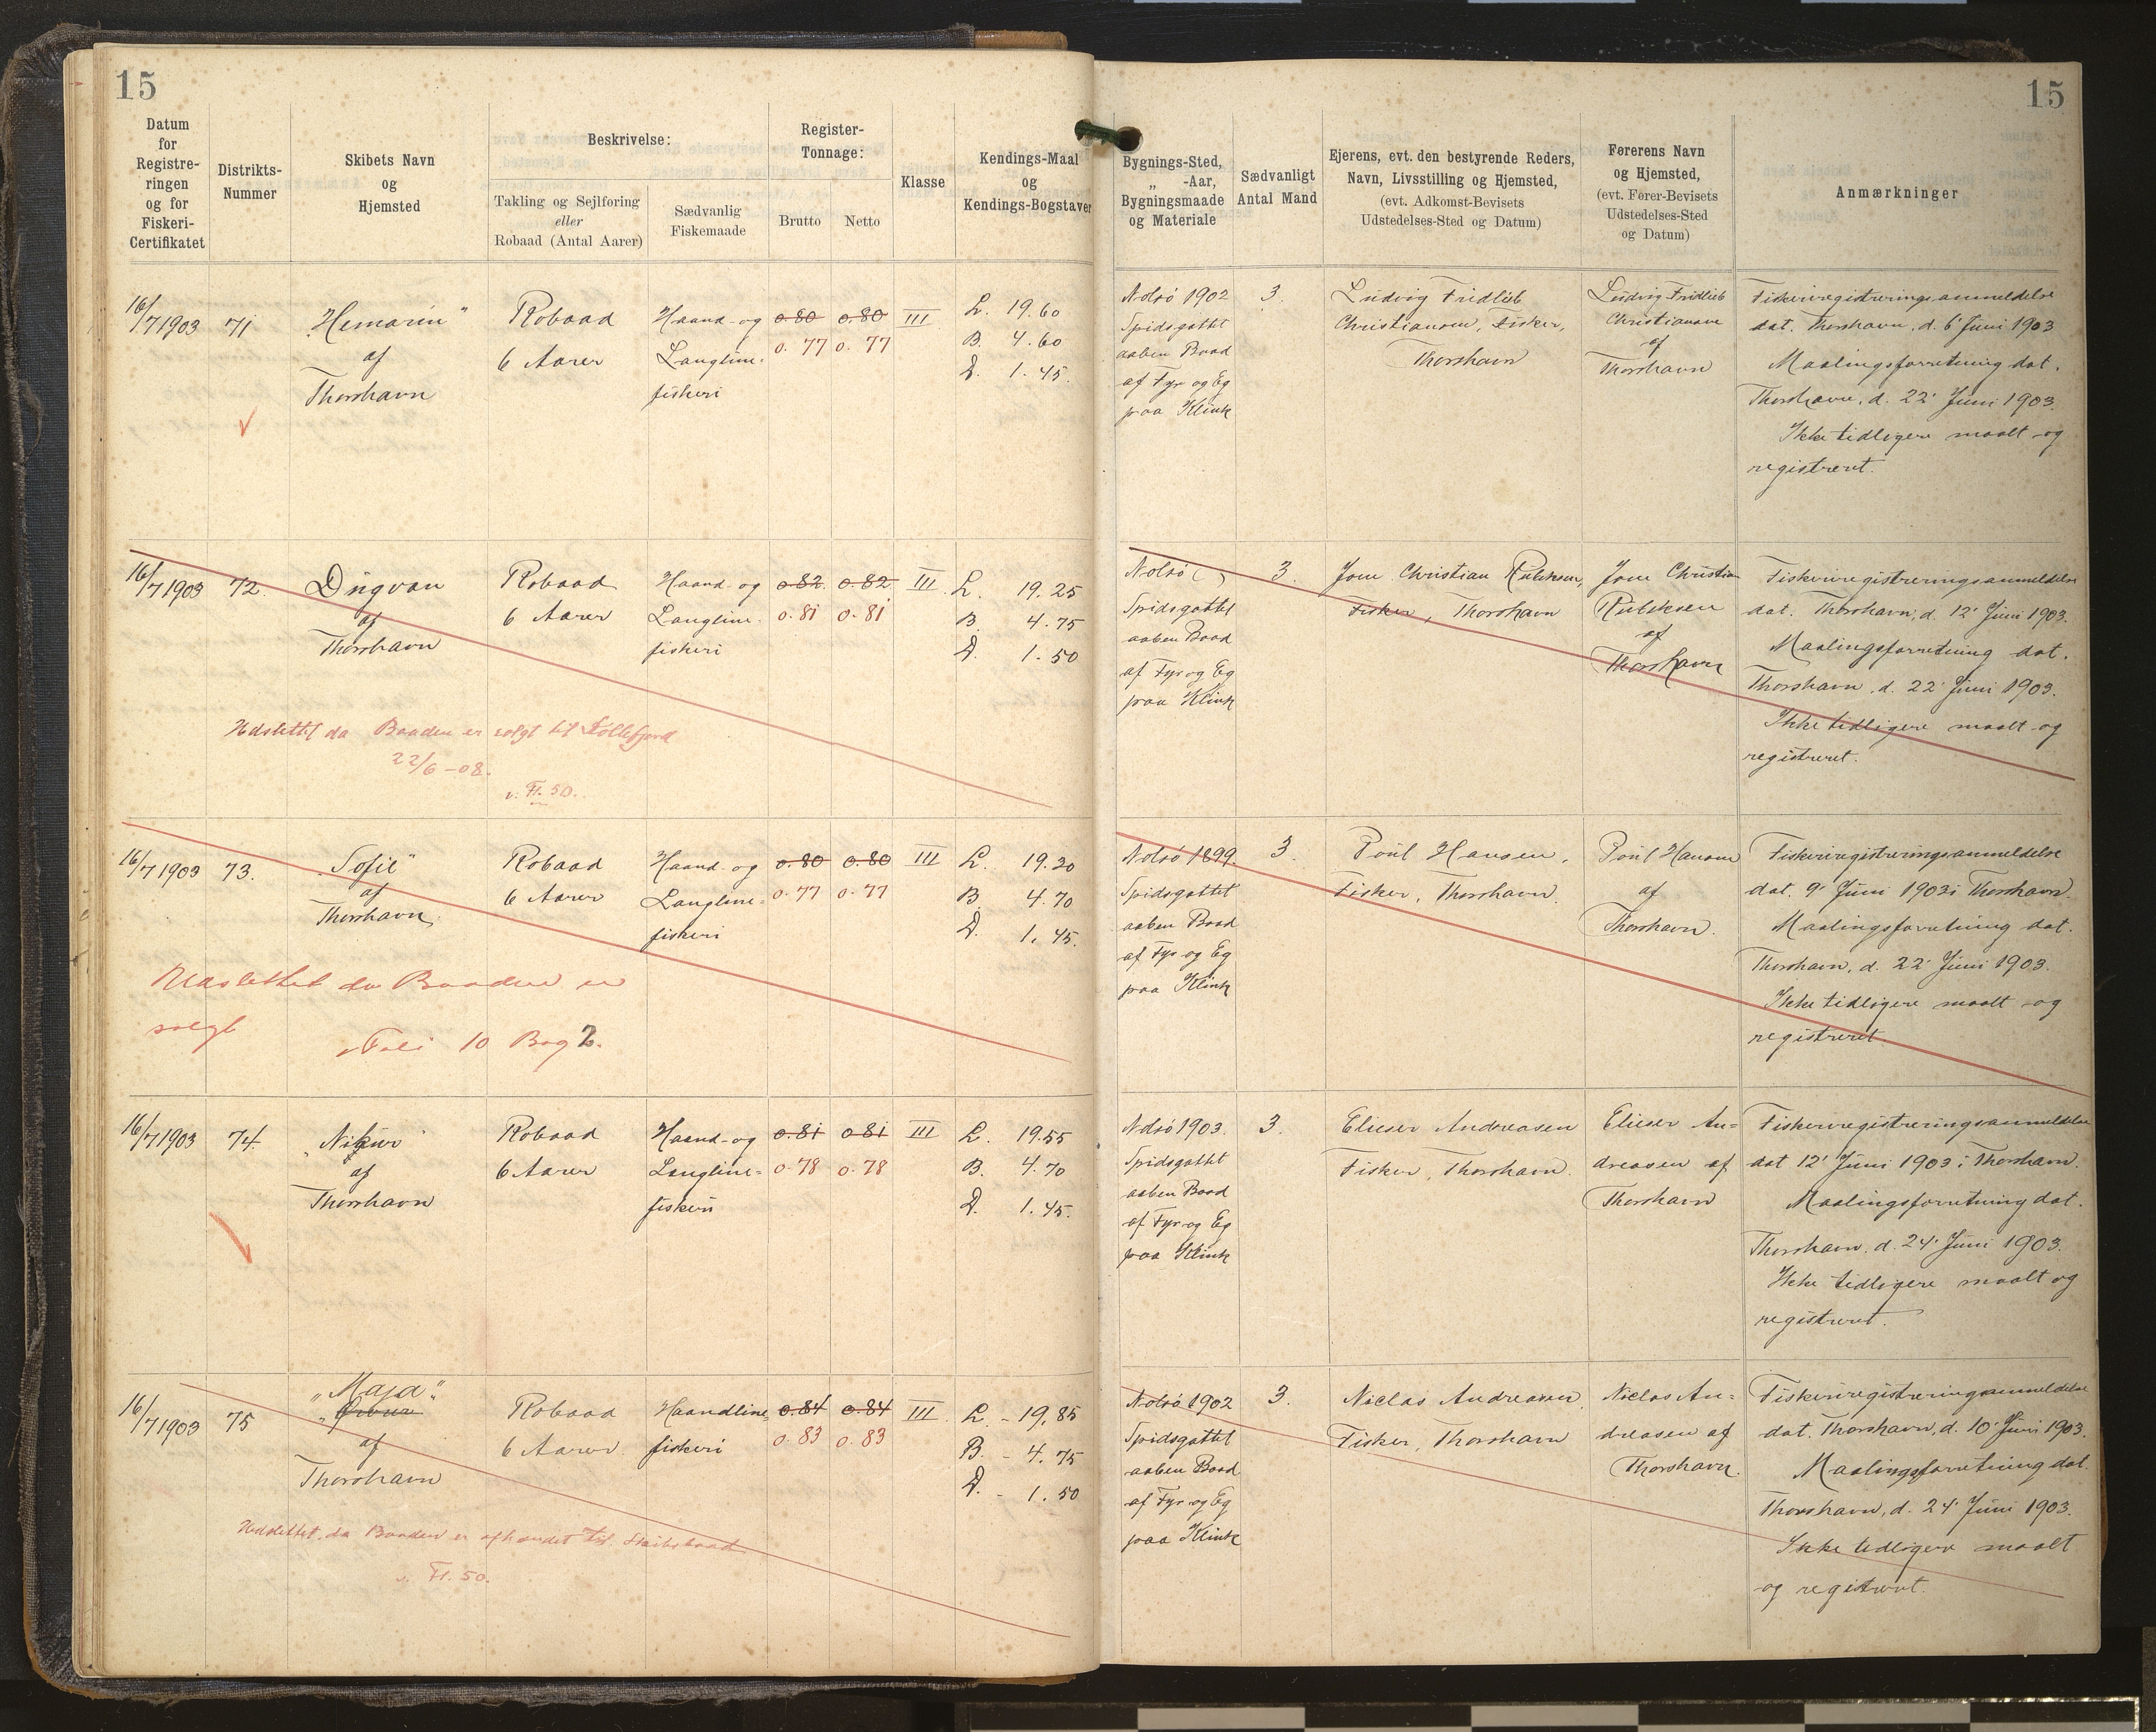 15
15
Datum
for
Registre-
ringen
og for
Fiskeri-
Certifikatet
Distrikts-
Nummer
Skibets Navn
og
Hjemsted
Beskrivelse:
Takling og Sejlføring
eller
Robaad (Antal Aarer)
Sædvanlig
Fiskemaade
Register-
Tonnage:
Brutto
Netto
Klasse
Kendings-Maal
og
Kendings-Bogstaver
Bygnings-Sted,
„ -Aar,
Bygningsmaade
og Materiale
Sædvanligt
Antal Mand
Ejerens, evt. den bestyrende Reders,
Navn, Livsstilling og Hjemsted,
(evt. Adkomst-Bevisets
Udstedelses-Sted og Datum)
Førerens Navn
og Hjemsted,
(evt. Fører-Bevisets
Udstedelses-Sted
og Datum)
Anmærkninger
16/7 1903
71
af
Thorshavn
Robaad
6 Aarer
Haand- og
Langline-
fiskeri
0.80 0.80
0.77 0.77
III
L. 19.60
B. 4.60
D. 1.45.
Nolsö 1902
Spidsgattet
aaben Baad
af Fyr og Eg
paa Klink
3.
Ludvig Fridlieb
Christiansen, Fisker,
Thorshavn
Ludvig Fridlieb
Christiansen
af
Thorshavn
Fiskeriregistreringsanmeldelse
dat. Thorshavn, d. 6' Juni 1903
Maalingsforretning dat.
Thorshavn, d. 22' Juni 1903.
Ikke tidligere maalt og
registreret.
16/7 1903
72.
Dúgvan
af
Thorshavn
Robaad
6 Aarer
Haand- og
Langline-
fiskeri
0.82 0.82
0.81 0.81
III.
L. 19.25
B. 4.75
D. 1.50
Udslettet da Baaden er solgt til Kollefjord
22/6 -08.
v. Fl. 50.
Nolsö ( )
Spidsgattet
aaben Baad
af Fyr og Eg
paa Klink
3.
Jom Christian
Fisker, Thorshavn
Jom Christian
af
Thorshavn
Fiskeriregistreringsanmeldelse
dat. Thorshavn, d. 12' Juni 1903.
Maalingsforretning dat.
Thorshavn, d. 22' Juni 1903.
Ikke tidligere maalt og
registreret.
16/7 1903
73.
„Sofie"
af
Thorshavn
Robaad
6 Aarer
Haand- og
Langline-
fiskeri
0.80 0.80
0.77 0.77
III
L. 19.20
B. 4.70
D. 1.45.
Udslettet da Baaden er
solgt
Foli 10 Bog 2.
Nolsö 1899.
Spidsgattet
aaben Baad
af Fyr og Eg
paa Klink
3.
Poul Hansen,
Fisker, Thorshavn.
Poul Hansen
af
Thorshavn.
Fiskeriregistreringsanmeldelse
dat. 9' Juni 1903 i Thorshavn.
Maalingsforretning dat.
Thorshavn, d. 22' Juni 1903.
Ikke tidligere maalt og
registreret.
16/7 1903
74.
af
Thorshavn
Robaad
6 Aarer
Haand- og
Langline-
fiskeri
0.81 0.81
0.78 0.78
III
L. 19.55
B. 4.70
D. 1.45.
Nolsö 1903.
Spidsgattet
aaben Baad
af Fyr og Eg
paa Klink
3.
Elieser Andreasen
Fisker, Thorshavn.
Elieser An-
dreasen af
Thorshavn
Fiskeriregistreringsanmeldelse
dat 12' Juni 1903 i Thorshavn.
Maalingsforretning dat.
Thorshavn, d. 24' Juni 1903.
Ikke tidligere maalt og
registreret.
16/7 1903
75
„Maja"
af
Thorshavn
Robaad
6 Aarer.
Haandline
fiskeri
0.84 0.84
0.83 0.83
III
L. - 19,85
B. - 4.75
D. - 1.50
Udslettet, da Baaden er afhændet til Skibsbaad
v. Fl. 50.
Nolsö 1902
Spidsgattet
aaben Baad
af Fyr og Eg
paa Klink
3.
Niclas Andreasen,
Fisker, Thorshavn
Niclas An-
dreasen af
Thorshavn.
Fiskeriregistreringsanmeldelse
dat. Thorshavn, d. 10' Juni 1903.
Maalingsforretning dat.
Thorshavn, d. 24' Juni 1903.
Ikke tidligere maalt
og registreret.